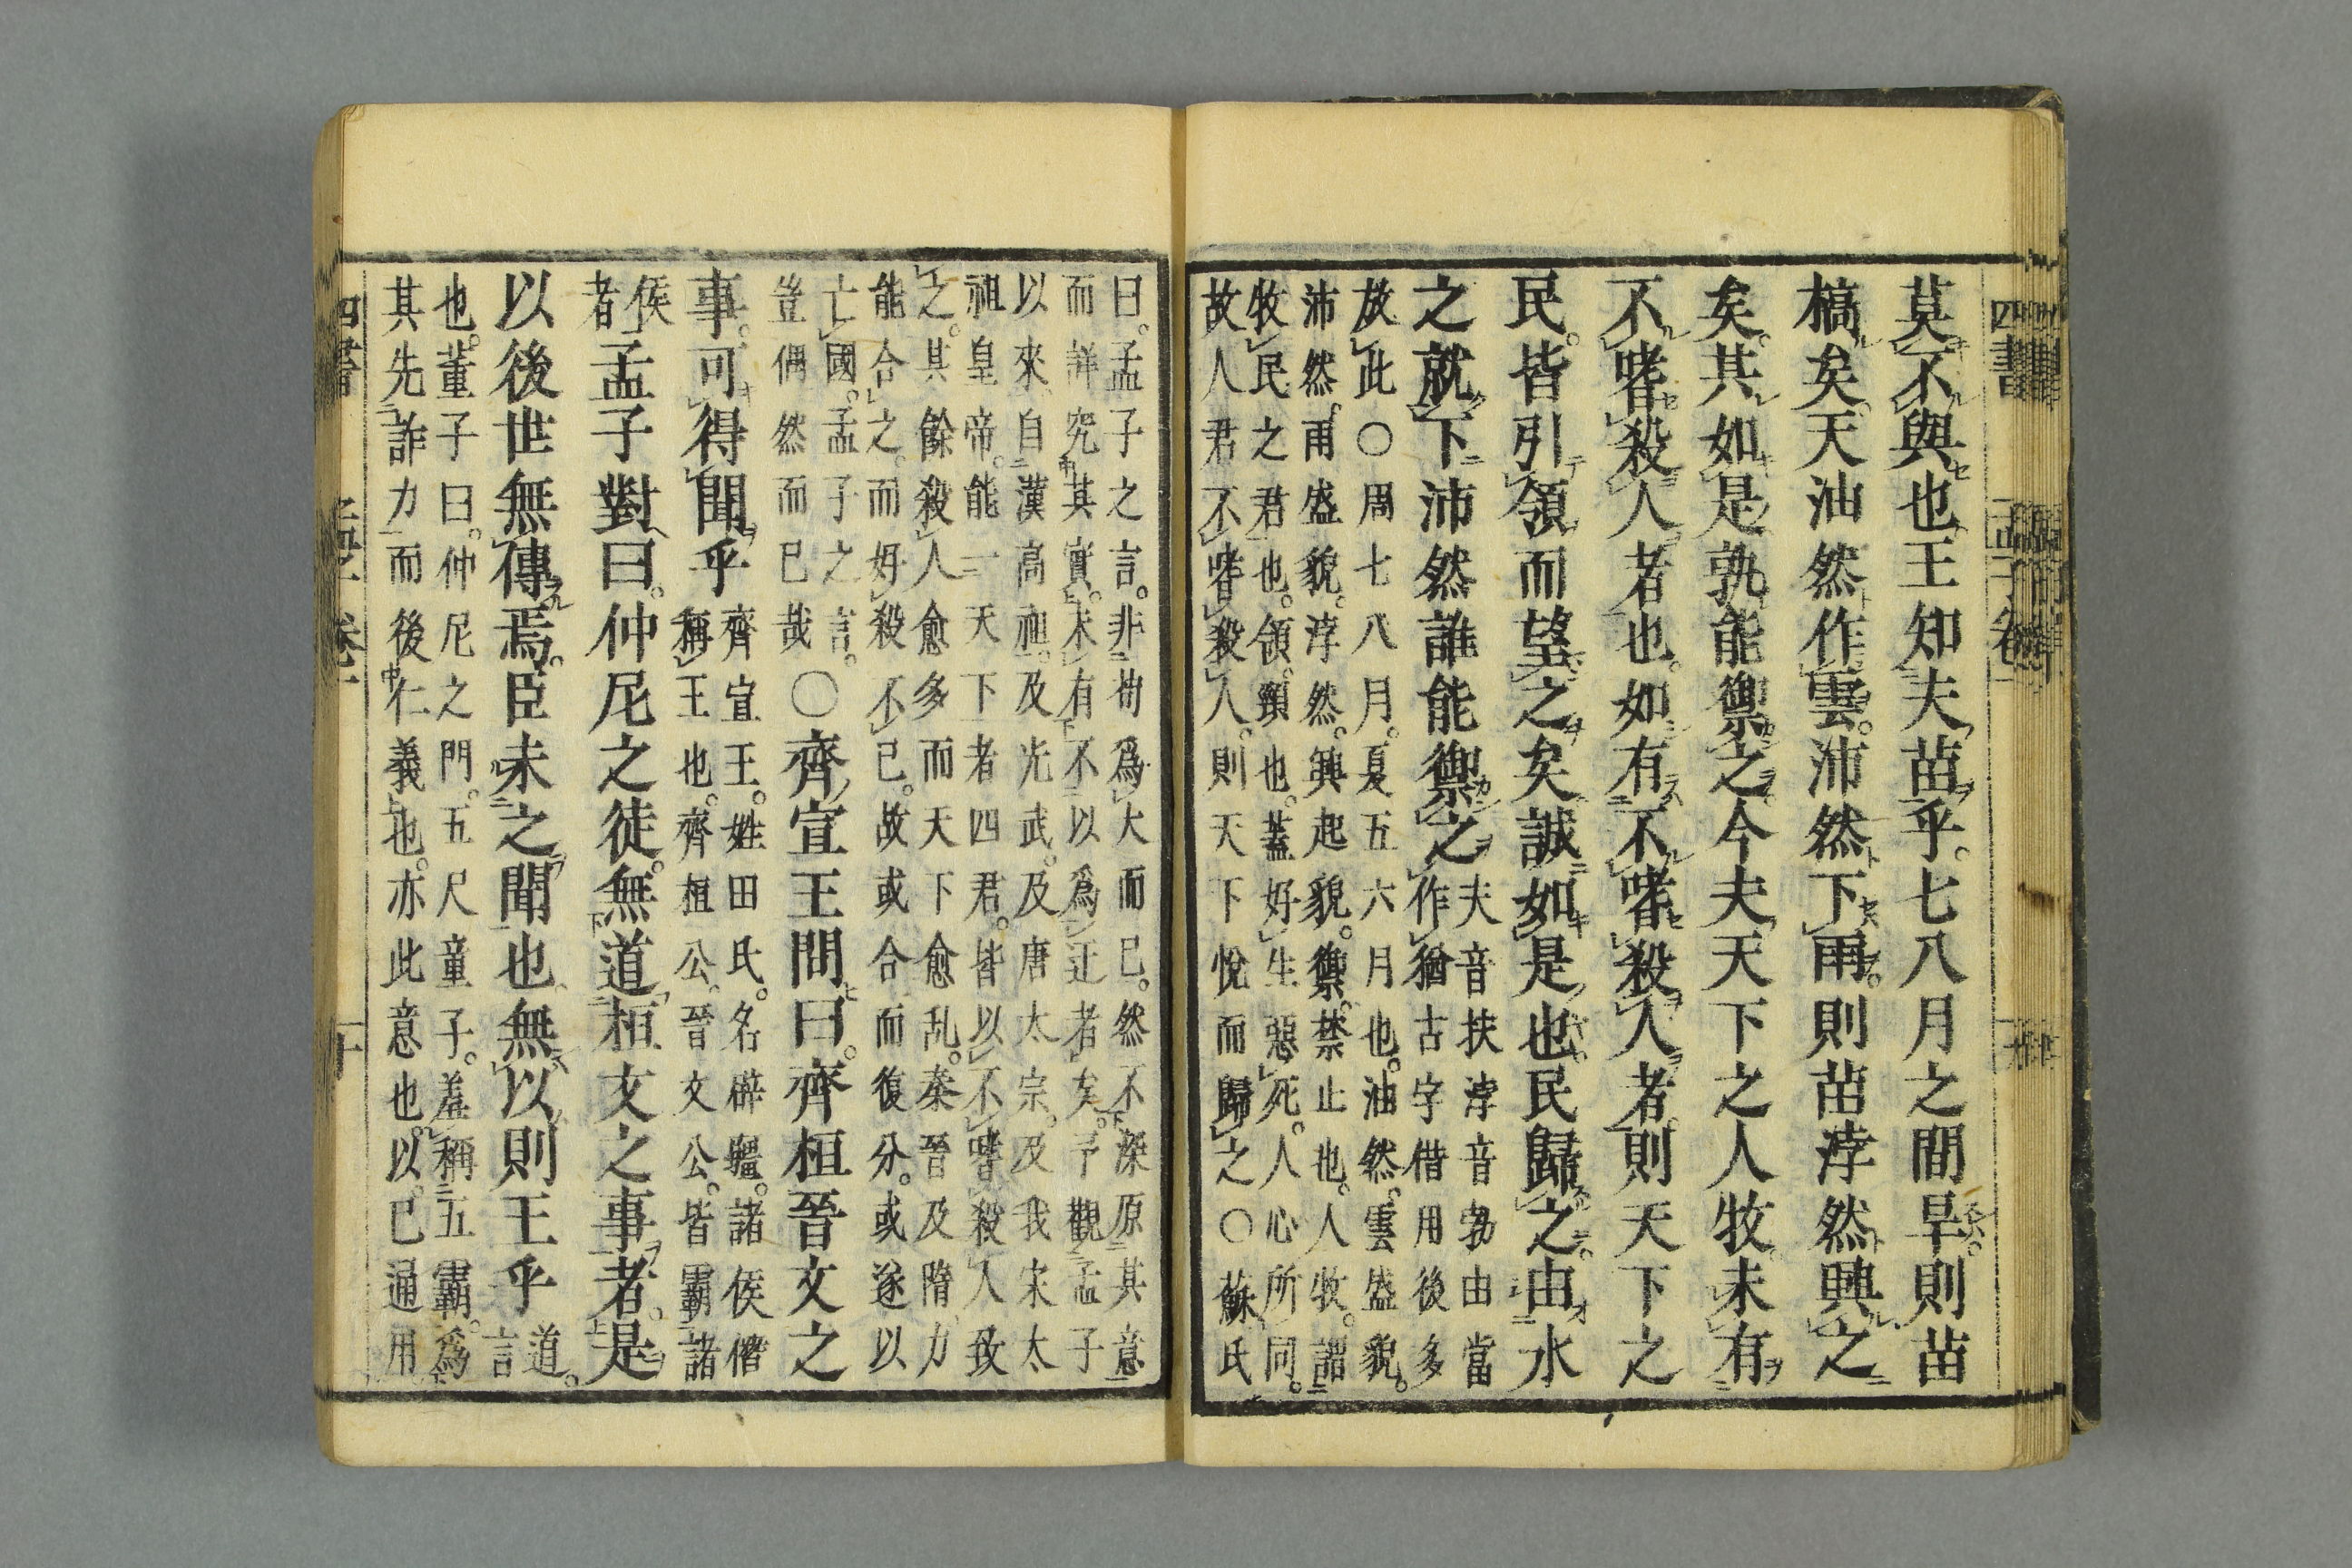 莫不與也王知夫苗乎。七八月之間旱。則苗
槁矣。天油然作雲。沛然下雨。則苗浡然興之
矣。其如是孰能禦之。今夫天下之人牧。未有
不嗜殺人者也。如有不嗜殺人者。則天下之
民。皆引領而望之矣誠如是也。民歸之。由水
之就下沛然誰能禦之
夫音扶浡音勃由當
作猶古字借用後多
放此〇周七八月。夏五六月也。油然。雲盛貌。
沛然。雨盛貌。浡然。興起貌。禦。禁止也。人牧。謂
牧民之君也。領。頸也。蓋好生惡死。人心所同。
故人君不嗜殺人。則天下悅而歸之〇蘇氏
曰。孟子之言。非苟爲大而已。然不深原其意
而詳究其實。未有不以爲迂者矣。予觀孟子
以來。自漢高祖。及光武。及唐太宗。及我宋太
祖皇帝。能一天下者四君。皆以不嗜殺人致
之。其餘殺人愈多而天下愈乱。秦晉及隋力
能合之。而好殺不已。故或合而復分。或遂以
亡國。孟子之言。
豈偶然而已哉
〇齊宣王問曰。齊桓晉文之
事。可得聞乎
齊宣王。姓田氏。名辟疆。諸侯僭
稱王也。齊桓公。晉文公。皆霸諸
侯
者
孟子對曰。仲尼之徒。無道桓文之事者。是
以後世無傳焉。臣未之聞也。無以則王乎
道。
言
也。董子曰。仲尼之門。五尺童子。羞稱五霸。爲
其先詐力而後仁義也。亦此意也。以。已通用
四書
孟子卷一
十
四書
孟子卷一